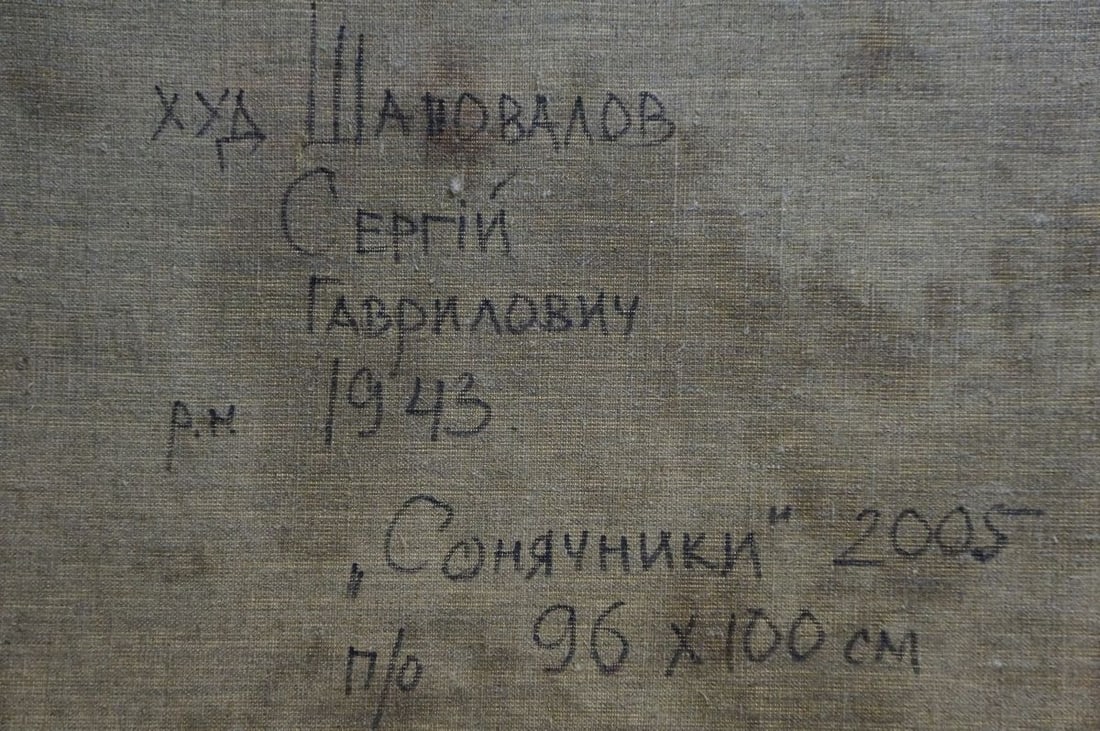 худ Шаповалов
Сергій
Гаврилович
р.н. 1943.
„Сонячники" 2005
п/о 96 x 100 см